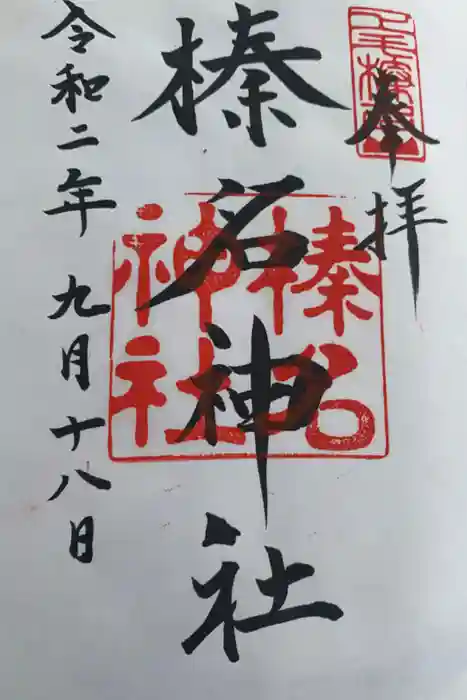 奉拝
榛名神社
榛名
神社
令和二年九月十八日